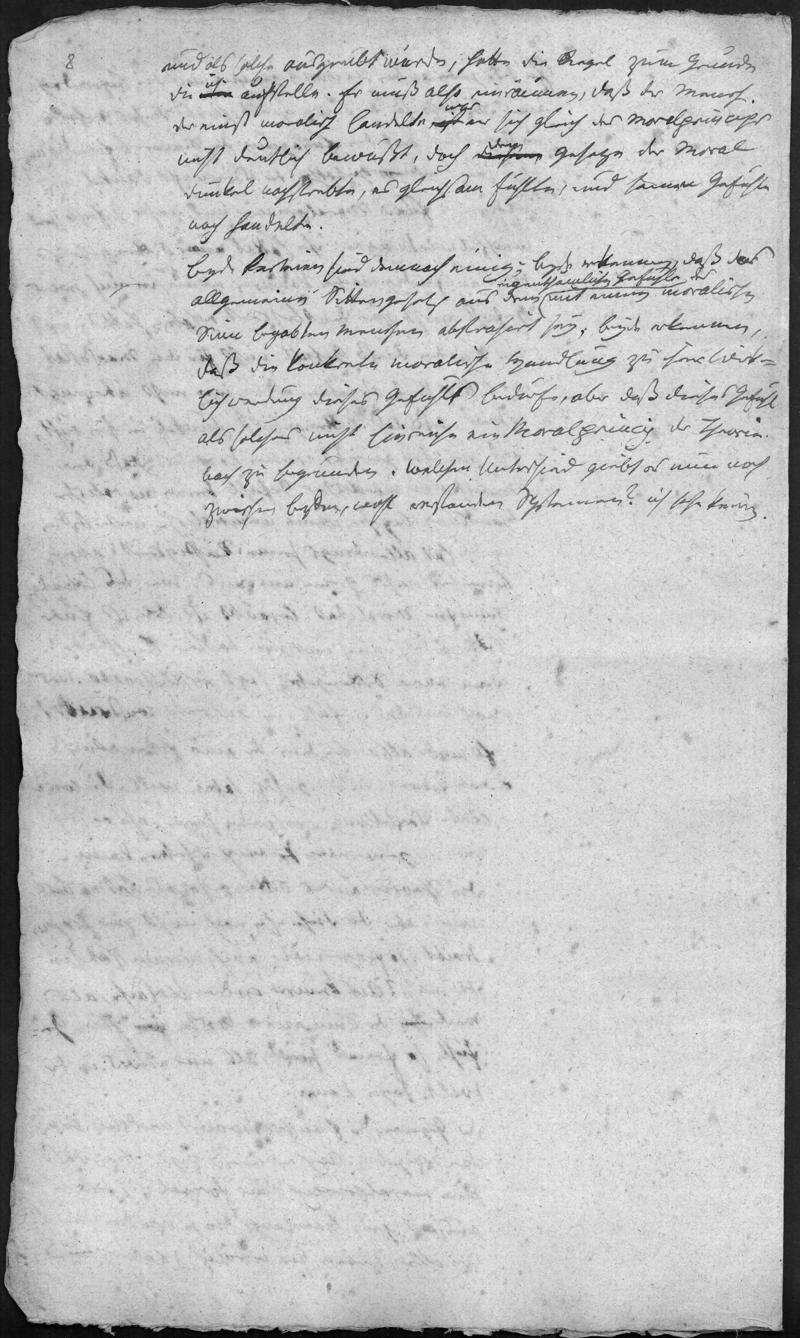 8
und als solche ausgeübt wurde, hatte die Regel zum Grunde
die ich aufstelle. Er muß also einräumen, daß der Mensch
der einst moralisch handelte, war er sich gleich des Moralprincips
nicht deutlich bewußt, doch dem Gesetze der Moral
dunkel nachstrebte, es gleichsam fühlte, und seinem Gefühle
nach handelte.
beyde Parteien sind demnach einig; beyde erkennen, daß das
eigenthümlichen Gefühle des
allgemeine Sittengesetz aus dem mit einem moralischen
Sinn begabten Menschen abstrahirt sey; beyde erkennen,
daß die konkrete moralische Handlung zu ihrer Wirk=
lichwerdung dieses Gefühls bedürfe, aber daß dieses Gefühl
als solches nicht hinreiche ein Moralprincip der Theorie
nach zu begründen. Welchen Unterschied giebt es nun noch
zwischen beyden, wohl verstanden Systemen? ich sehe keinen.